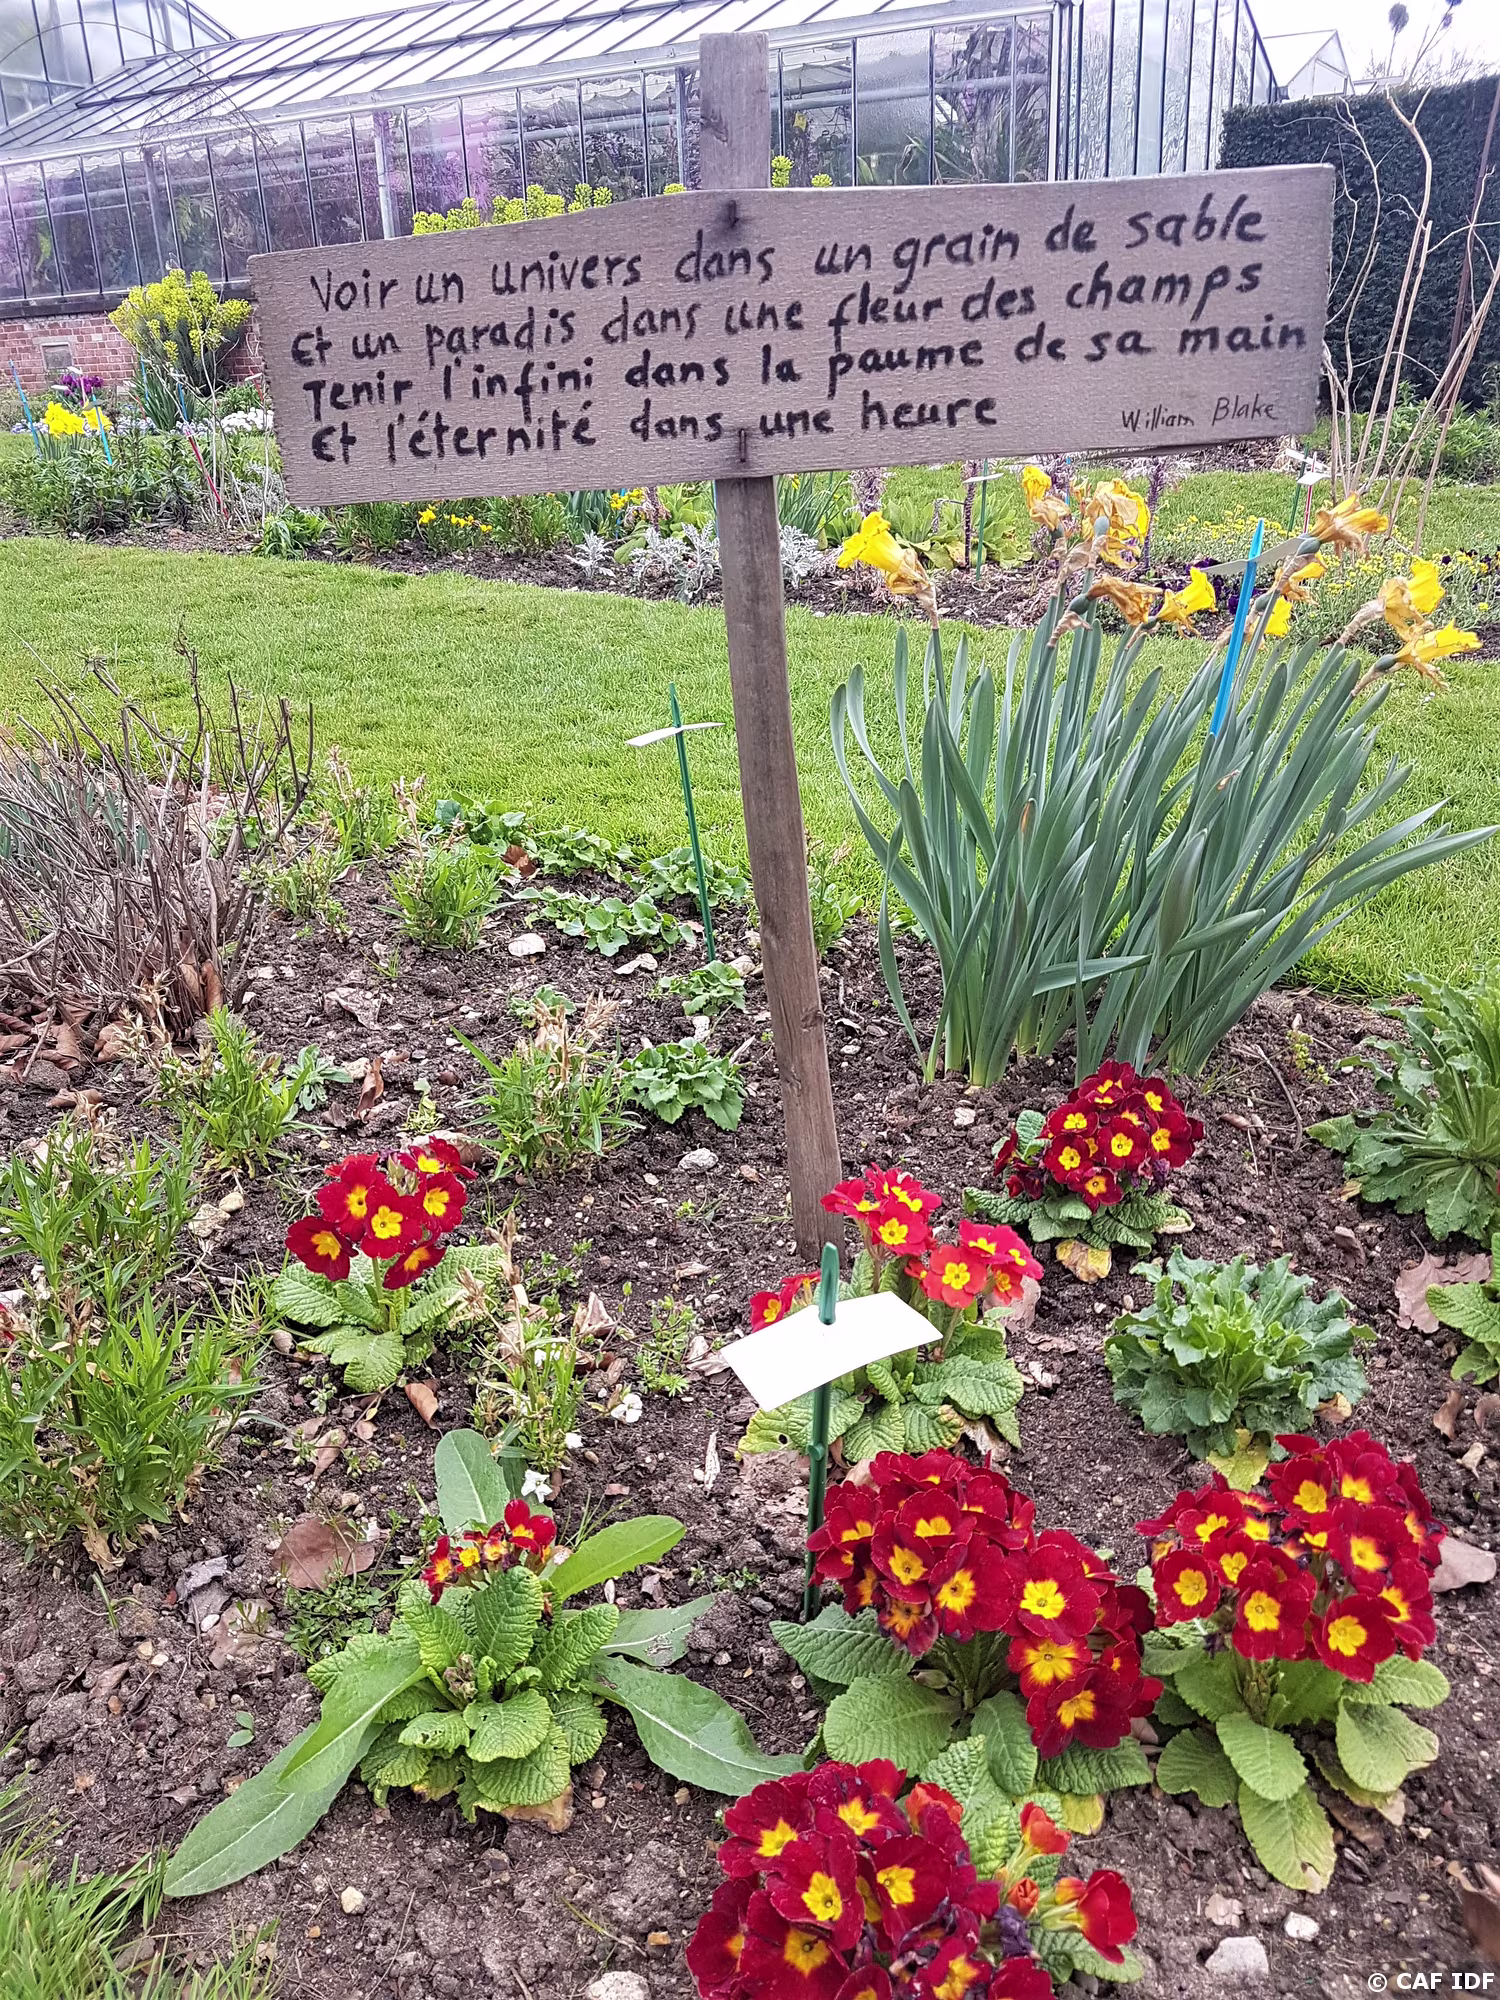 Voir un univers dans un grain de sable
Et un paradis dans une fleur des champs
Tenir l'infini dans la paume de sa main
Et l'éternité dans une heure
William Blake
© CAF IDF